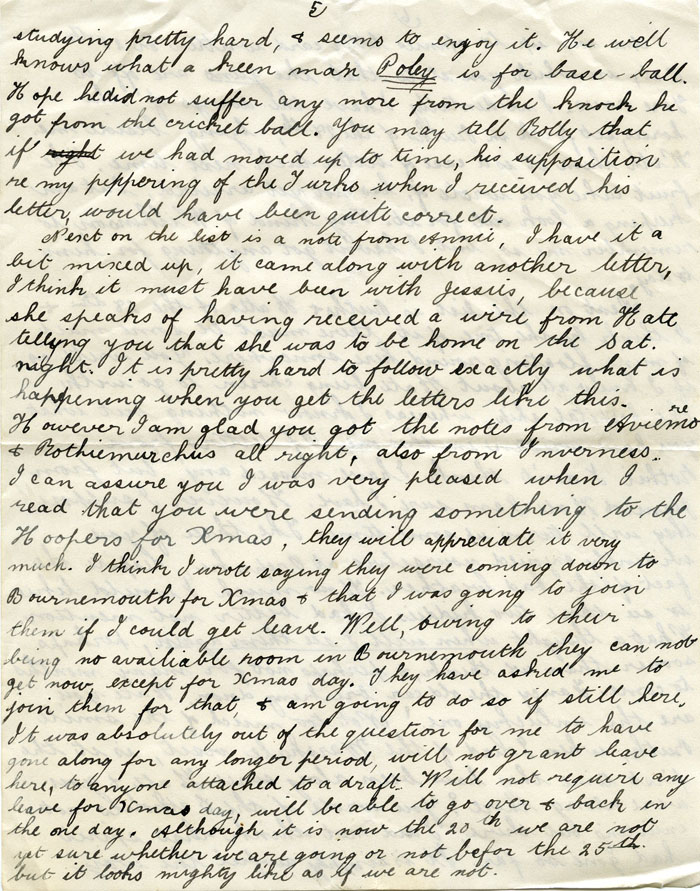 5
studying pretty hard, & seems to enjoy it. He well
knows what a keen man Poley is for base-ball.
Hope he did not suffer any more from the knock he
got from the cricket ball. You may tell Rolly that
if right we had moved up to time, his supposition
re my peppering of the Turks when I received his
letter, would have been quite correct.
Next on the list is a note from Annie, I have it a
bit mixed up, it came along with another letter,
I think it must have been with Jessiis, because
she speaks of having received a wire from Kate
telling you that she was to be home on the Sat.
night. It is pretty hard to follow exactly what is
happening when you get the letters like this.
However I am glad you got the notes from Aviemore
& Rothiemurchus all right, also from Inverness.
I can assure you I was very pleased when I
read that you were sending something to the
Hoopers for Xmas, they will appreciate it very
much. I think I wrote saying they were coming down to
Bournemouth for Xmas & that I was going to join
them if I could get leave. Well, owing to their
being no availiable room in Bournemouth they can not
get now, except for Xmas day. They have asked me to
join them for that, & am going to do so if still here,
It was absolutely out of the question for me to have
gone along for any longer period, will not grant leave
here, to anyone attached to a draft. Will not require any
leave for Xmas day, will be able to go over & back in
the one day. Although it is now the 20th we are not
yet sure whether we are going or not befor the 25th.
but it looks mighty like as if we are not.